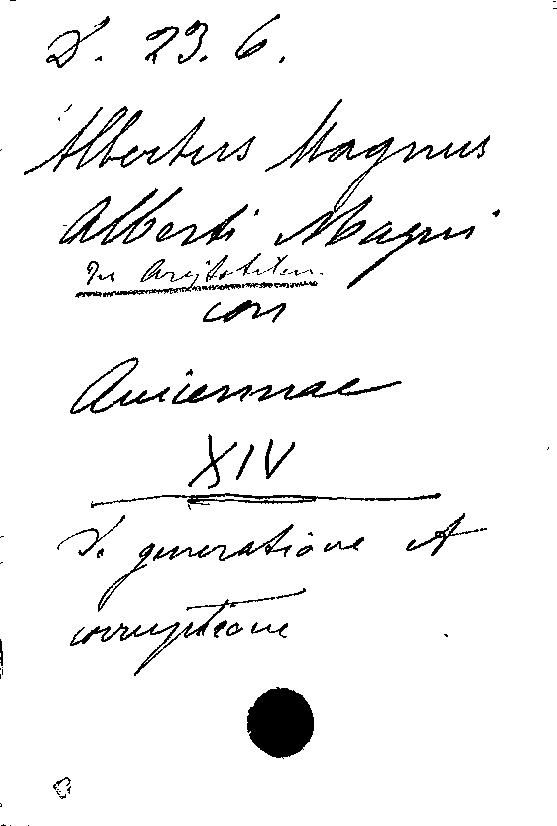 D. 23. 6.
Albertus Magnus
Alberti Magni
In Aristotelem.
com
Auicennae
XIV
D. generatione et
corruptione